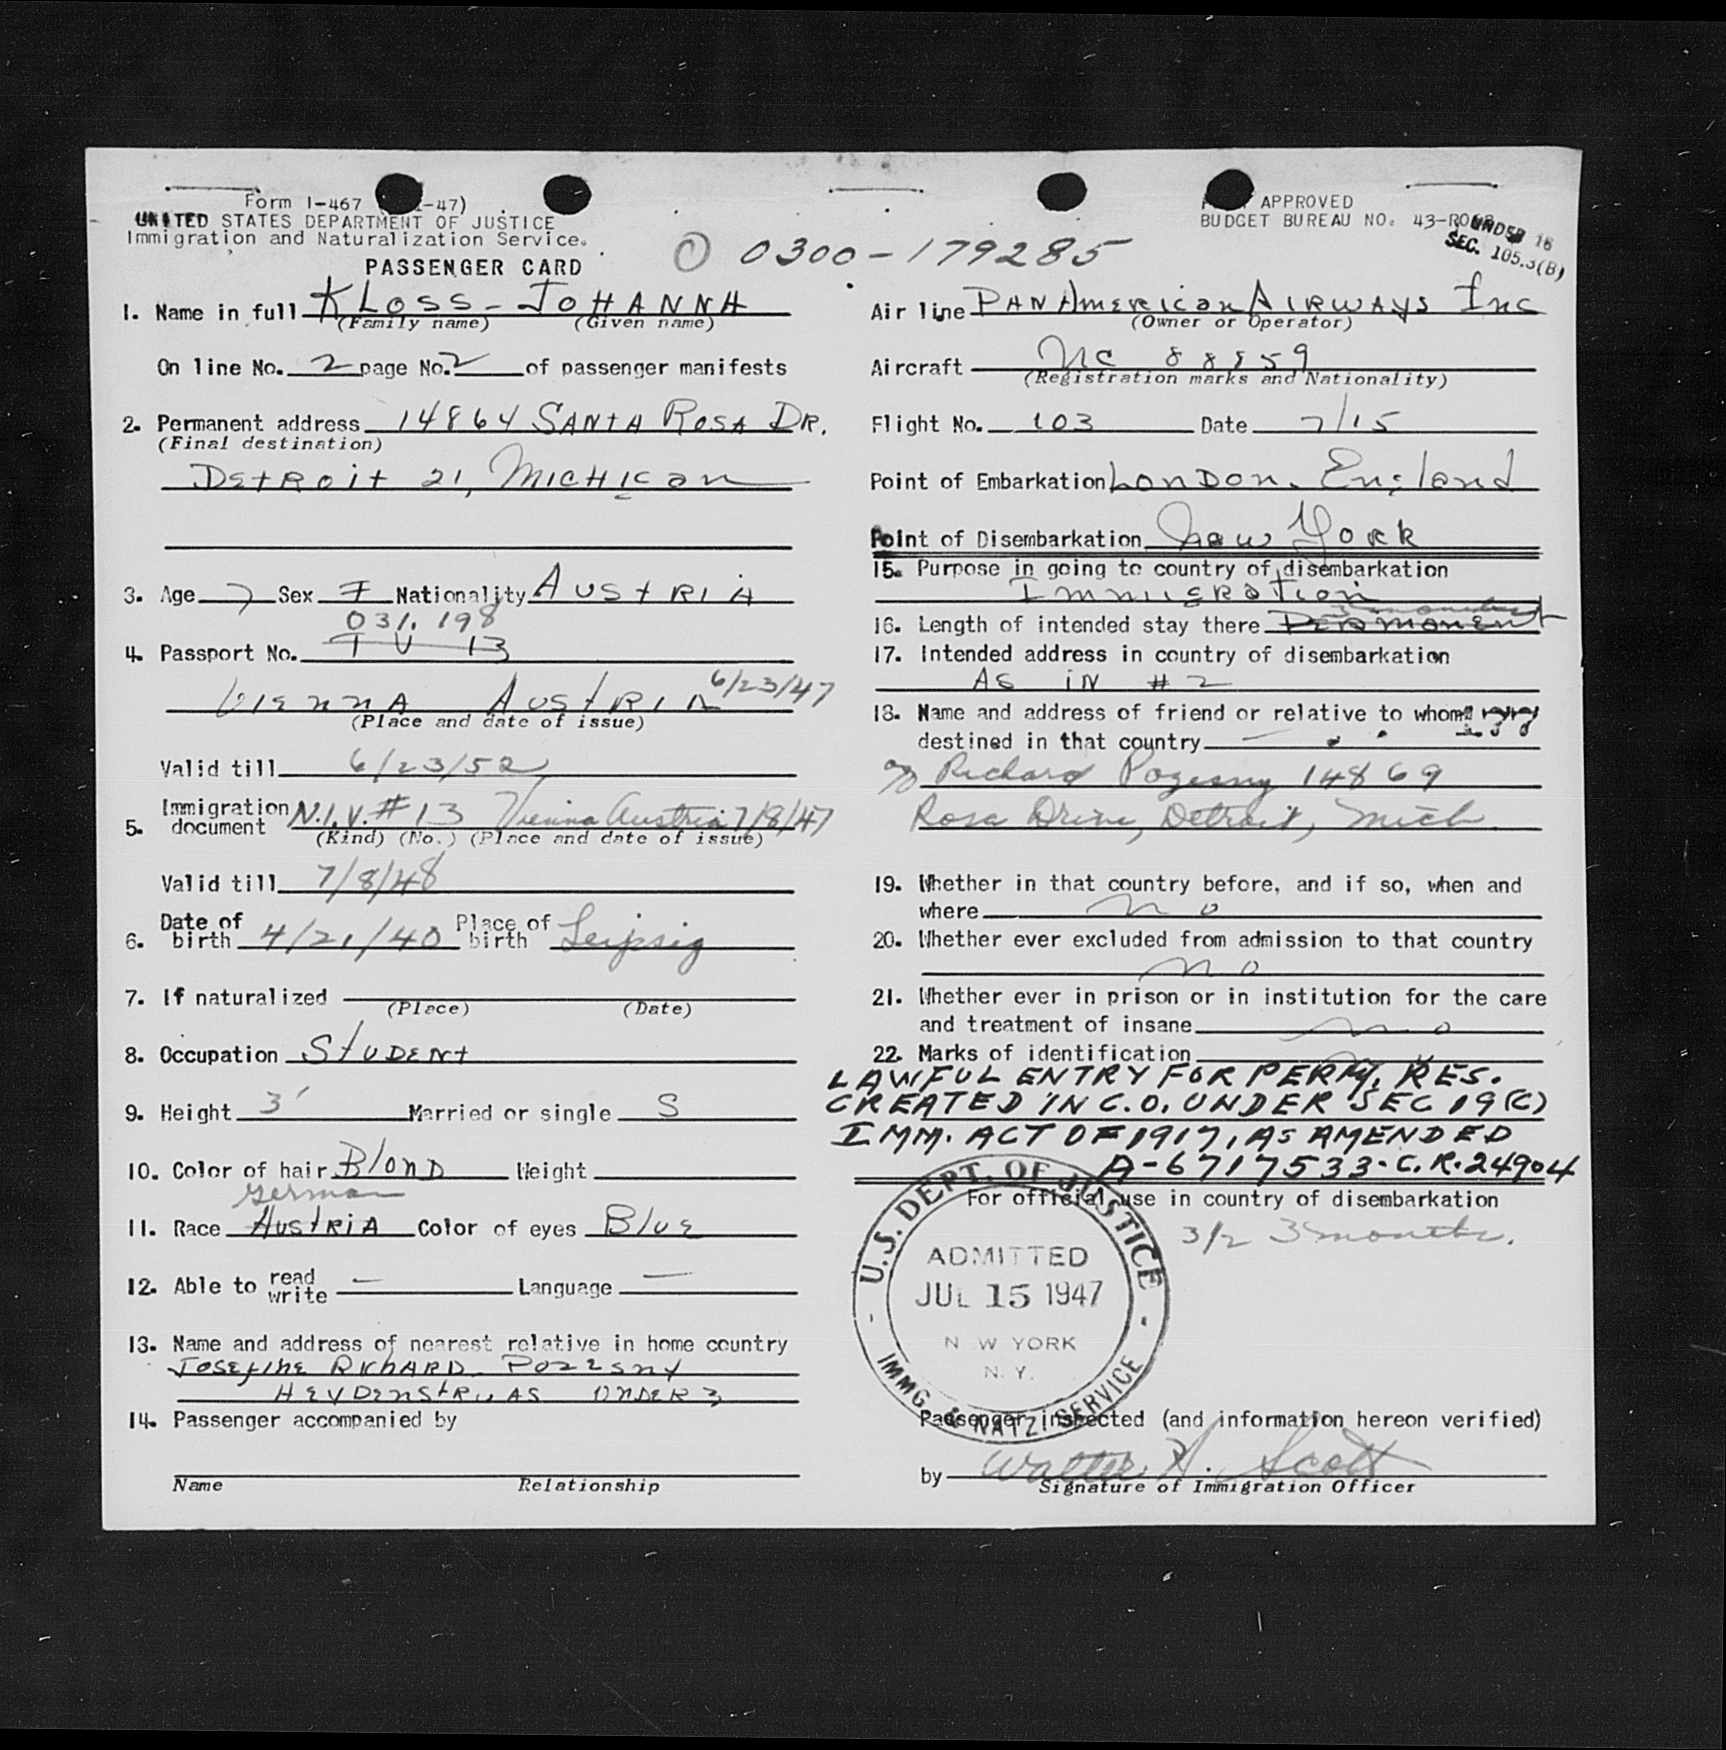 Form I-467 -47)
UNITED STATES DEPARTMENT OF JUSTICE
Immigration and Naturalization Service.
PASSENGER CARD
0300-179285
APPROVED
BUDGET BUREAU NO. 43-R
UNDER 16
SEC. 105.3(B)
1. Name in full KLOSS - JOHANNA
(Family name) (Given name)
On line No. 2 page No. 2 of passenger manifests
2. Permanent address 14864 SANTA ROSA DR.
(Final destination)
DETROIT 21, MICHIGAN
3. Age 7 Sex F Nationality AUSTRIA
031.198
4. Passport No. T V 13
VIENNA AUSTRIA 6/23/47
(Place and date of issue)
Valid till 6/23/52
5. Immigration document N.I.V. #13 Vienna Austria 7/8/47
(Kind) (No.) (Place and date of issue)
Valid till 7/8/48
6. Date of birth 4/21/40 Place of birth Leipsig
7. If naturalized
(Place) (Date)
8. Occupation STUDENT
9. Height 3' Married or single S
10. Color of hair BLOND Weight
German
11. Race AUSTRIA Color of eyes BLUE
12. Able to read write — Language —
13. Name and address of nearest relative in home country
JOSEFINE RICHARD POZESNY
14. Passenger accompanied by
Name Relationship
Air line PAN AMERICAN AIRWAYS INC
(Owner or Operator)
Aircraft NC 88859
(Registration marks and Nationality)
Flight No. 103 Date 7/15
Point of Embarkation LONDON. ENGLAND
Point of Disembarkation New York
15. Purpose in going to country of disembarkation
IMMIGRATION
3 months
16. Length of intended stay there PERMANENT
17. Intended address in country of disembarkation
AS IN #2
18. Name and address of friend or relative to whom
destined in that country
Richard Pozesny 14869
Rosa Drive, Detroit, Mich
19. Whether in that country before, and if so, when and
where no
20. Whether ever excluded from admission to that country
no
21. Whether ever in prison or in institution for the care
and treatment of insane no
22. Marks of identification
LAWFUL ENTRY FOR PERM. RES.
CREATED IN C.O. UNDER SEC 19(C)
IMM. ACT OF 1917, AS AMENDED
A-6717533-C.R.24904
For official use in country of disembarkation
3/2 3 months.
U.S. DEPT. OF JUSTICE
ADMITTED
JUL 15 1947
N W YORK
N.Y.
IMMG. & NATZ. SERVICE
Passenger inspected (and information hereon verified)
by Walter H. Scott
Signature of Immigration Officer